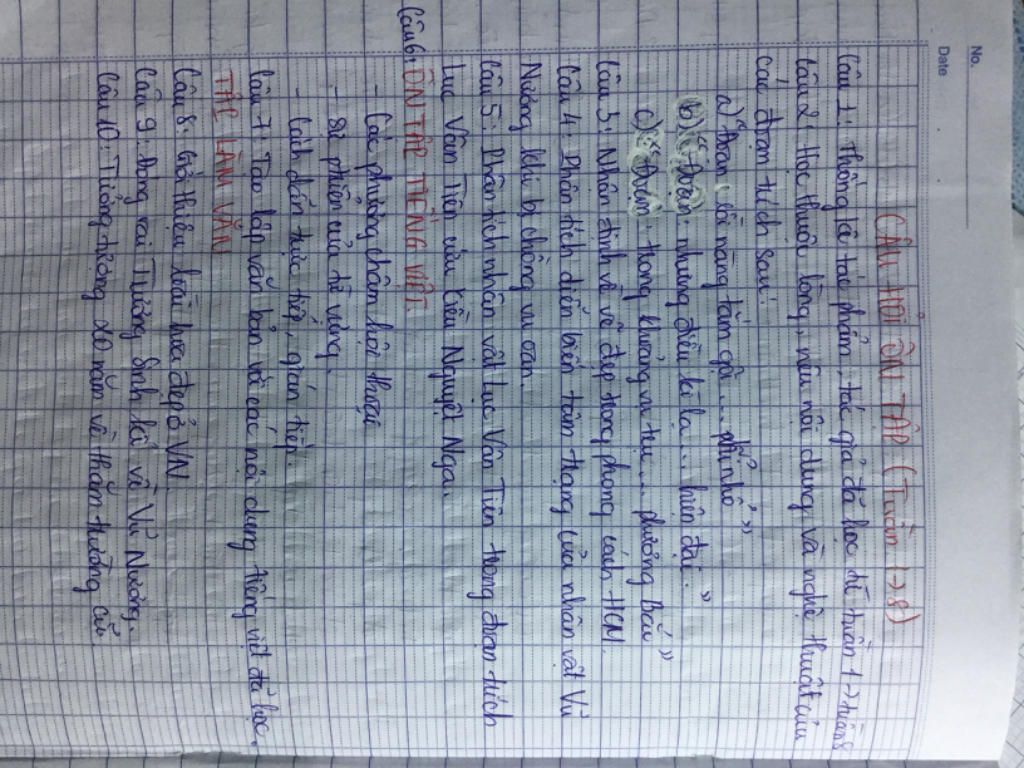 No.
Date
CÂU HỎI ÔN TẬP (Tuần 1→8)
Câu 1: Thống kê tác phẩm, tác giả đã học từ tuần 1→tuần 8
Câu 2: Học thuộc lòng, nêu nội dung và nghệ thuật của
các đoạn trích sau:
a) "Đoạn: rồi nàng tắm gội... phỉ nhổ"
b) "Đoạn: nhưng điều kì lạ... hiện đại."
c) "Đoạn: trong khoảng vũ trụ... phương Bắc"
Câu 3: Nhận định về vẻ đẹp trong phong cách HCM.
Câu 4: Phân tích diễn biến tâm trạng của nhân vật Vũ
Nương khi bị chồng vu oan.
Câu 5: Phân tích nhân vật Lục Vân Tiên trong đoạn trích
Lục Vân Tiên cứu Kiều Nguyệt Nga.
Câu 6: ÔN TẬP TIẾNG VIỆT.
- Các phương châm hội thoại
- Sự phiển của từ vựng.
- Cách dẫn trực tiếp, gián tiếp.
Câu 7: Tạo lập văn bản với các nội dung tiếng việt đã học.
TẬP LÀM VĂN
Câu 8: Giới thiệu loài hoa đẹp ở VN.
Câu 9: Đóng vai Trương Sinh kể về Vũ Nương.
Câu 10: Tưởng tượng 20 năm về thăm trường cũ.